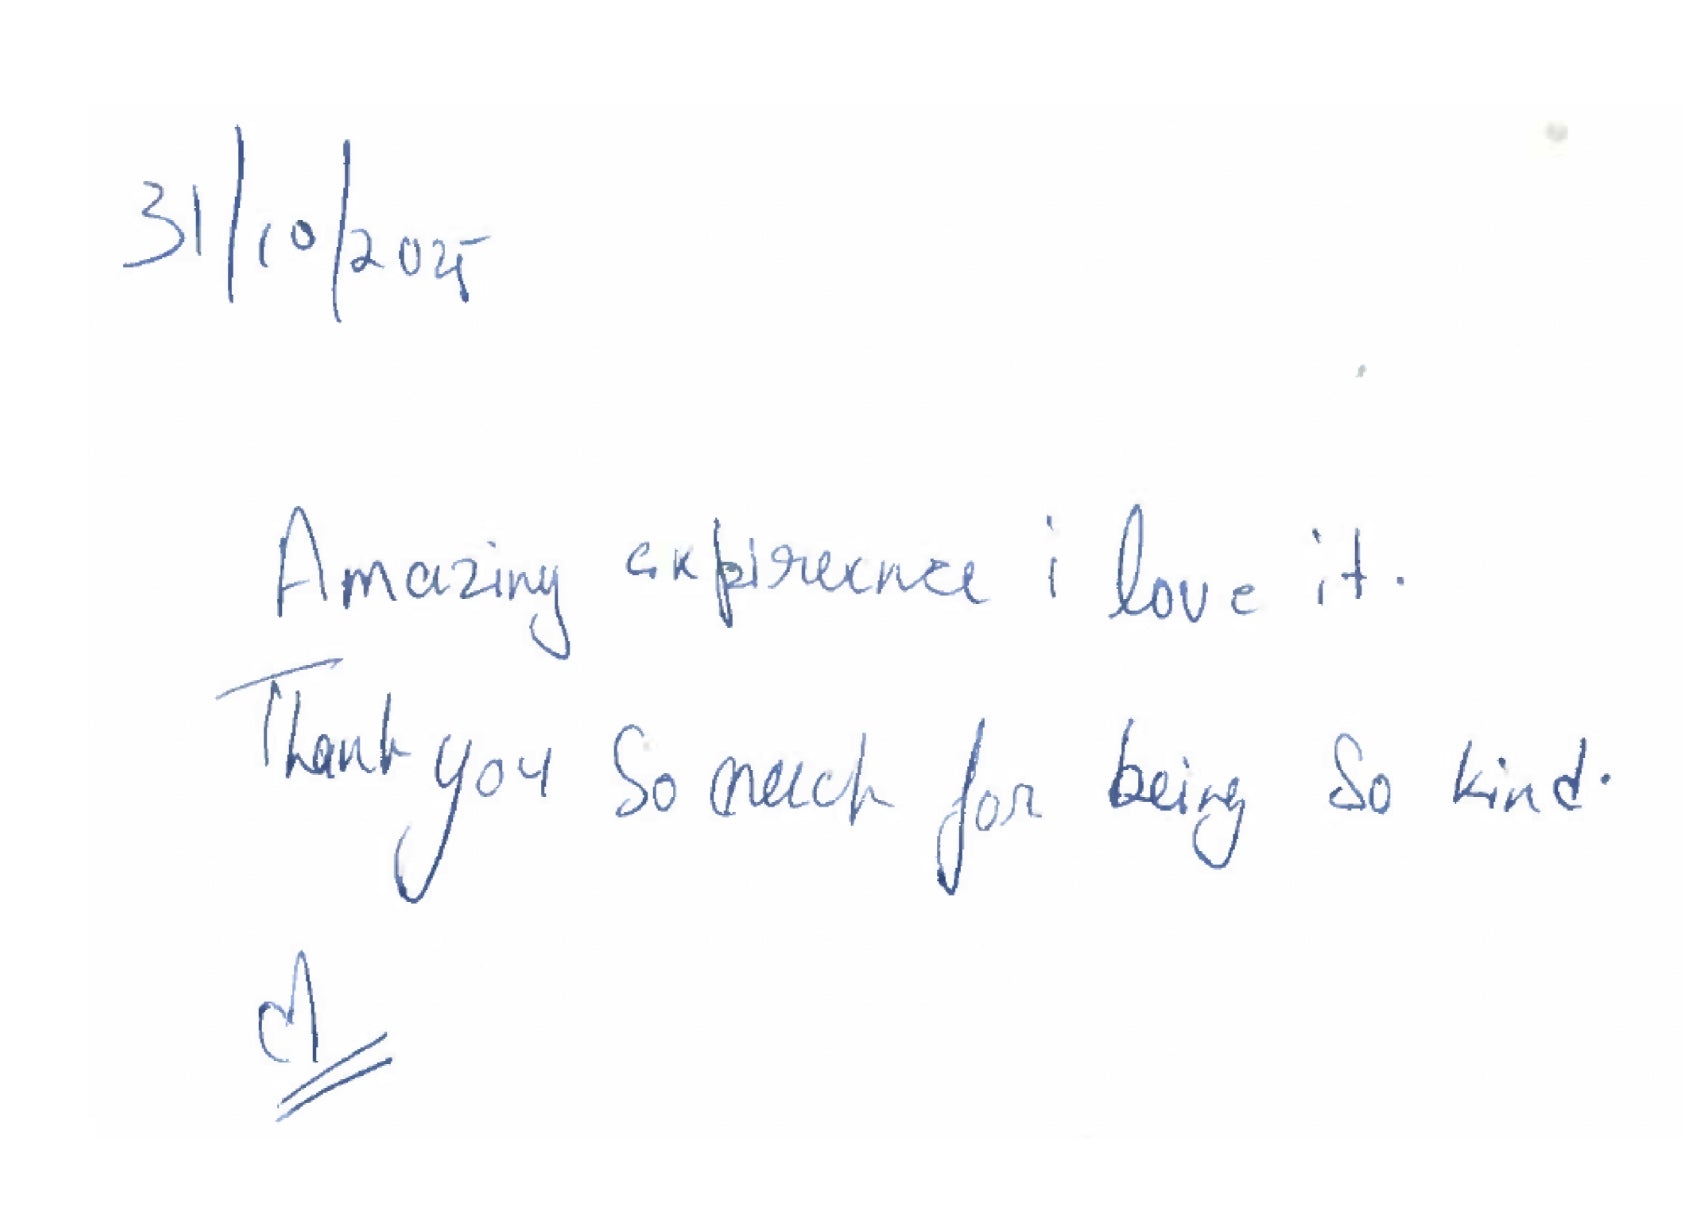 31/10/2025
Amazing expireence i love it.
Thank you So much for being So kind.